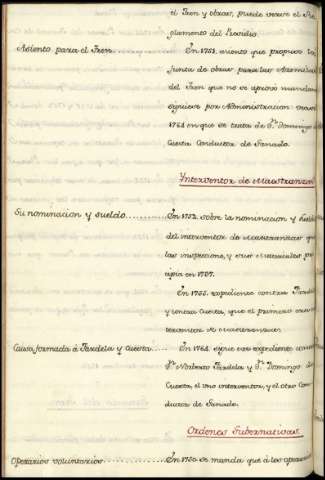 el Tren y obras, puede verse el Re-
glamento del Presidio.
Asiento para el Tren. En 1753, asiento que propuso la
Junta de obras para las Acemilas
del Tren que no se aprobo mandan
siguiese por Administracion vease
1764 en que se trata de Dn. Domingo
Cuesta Conductor de Ganado.
Interventor de Maestranzas
Su nominacion y sueldo En 1752 sobre la nominacion y sueldo
del interventor de Maestranzas que
las inspecciona, y sus Materiales pr
en 1757.
En 1755. expediente contra Tardela
y contra Cuesta, que el primero era in-
terventor de Maestranzas
Causa formada á Tardela y Cuesta En 1764. sigue ese expediente contra
Dn. Norberto Tardela y Dn. Domingo de
Cuesta, el uno interventor, y el otro Con-
ductor de Ganado.
Ordenes Gubernativas.
Operarios voluntarios En 1750 se manda que á los operarios